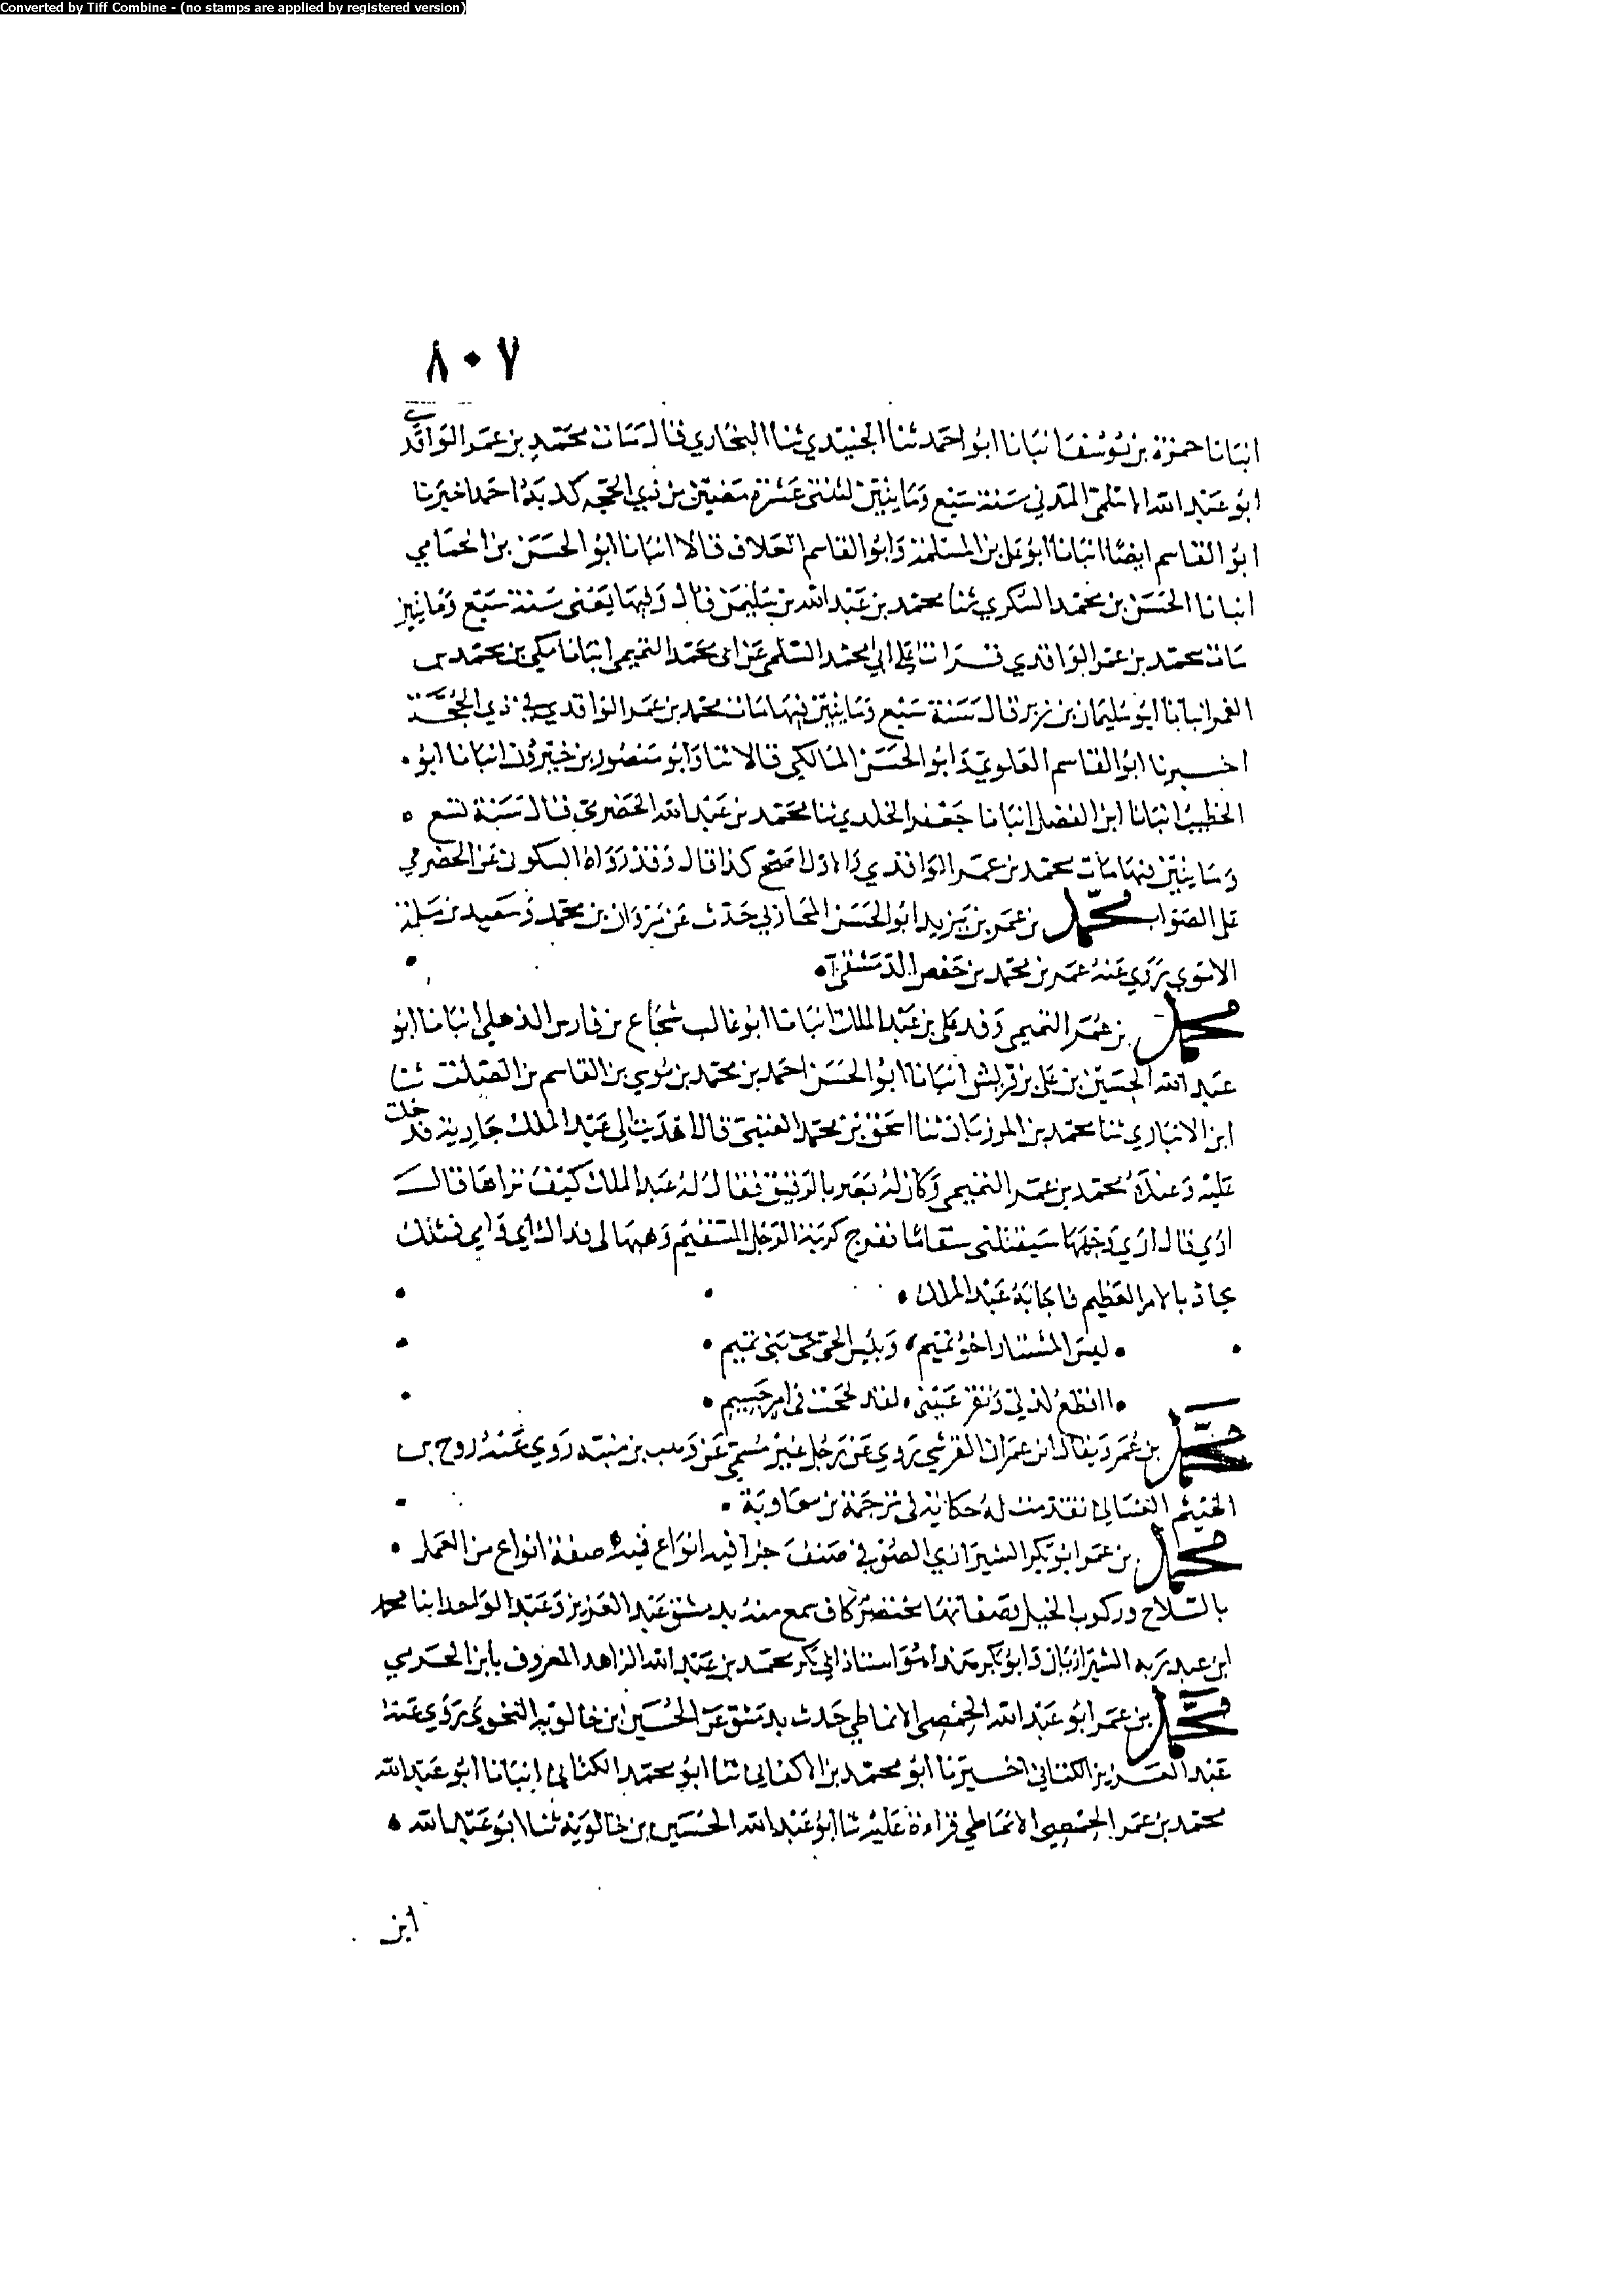 Converted by Tiff Combine - (no stamps are applied by registered version)
٨٠٧
انبانا حمزة بن يوسف انبانا ابو احمد ثنا الجنيدي ثنا البخاري قال مات محمد بن عمر الواقدي
ابو عبد الله الاسلمي المدني سنة سبع وماىتين لثنتي عشرة مضين من ذي الحجه كذبه احمد اخبرنا
ابو القاسم ايضا انبانا ابو علي بن المسلمة وابو القاسم العلاف قالا انبانا ابو الحسن بن الحمامي
انبانا الحسن بن محمد السكري ثنا محمد بن عبد الله بن سليمن قال وفيها يعني سنة سبع وماىتين
مات محمد بن عمر الواقدي قرات علي ابي محمد السلمي عن ابي محمد التميمي انبانا مكي بن محمد بن
الغمر انبانا ابو سليمان بن زبر قال سنة سبع وماىتين فيها مات محمد بن عمر الواقدي في ذي الحجة
اخبرنا ابو القاسم العلوي وابو الحسن المالكي قالا ثنا وابو منصور بن خيرون انبانا ابو
الخطيب انبانا ابن الفضل انبانا جعفر الخلدي ثنا محمد بن عبد الله الحضرمي قال سنة تسع
وماىتين فيها مات محمد بن عمر الواقدي كذا قال وقد رواه السكوني عن الحضرمي
على الصواب محمد بن عمر بن يزيد ابو الحسن المحاربي حدث عن مروان بن محمد وسعيد بن مسلمة
الاموي روي عنه عمر بن محمد بن حفص الدمشقي
محمد بن عمر التميمي وفد على بن عبد الملك انبانا ابو غالب شجاع بن فارس الذهلي انبانا ابو
عبد الله الحسين بن علي بن قريش انبانا ابو الحسن احمد بن محمد بن موسي بن القاسم بن الصلت ثنا
ابن الانباري ثنا محمد بن المرزبان ثنا اسحق بن محمد قال اهديت الى عبد الملك جارية فدخلت
عليه وعنده محمد بن عمر التميمي وكان له بصر بالرقيق فقال له عبد الملك كيف تراها قال
اري قال اري وجهها سيقتلني سقاما ففرج كربة الرجل السقيم وهبها لي فداك ابي وامي فمثلك
جاد بالامر العظيم فاجابه عبد الملك
ليس المستشار اخو تميم وبيس الحي حي بني تميم
بن عمر ويقال ابن عمران القرشي روي عن رجل غير مسمى عن وهب بن منبه روي عنه روح بن
الهيثم الغساني تقدمت له حكاية في ترجمة بن معاوية
محمد بن عمر ابو بكر الشيرازي الصوفي صنف جزا فيه انواع فيه صفة انواع من العمل
بالسلاح وركوب الخيل بصفاتها مختصر كاف سمع منه بدمشق عبد العزيز وعبد الواحد ابنا محمد
ابن عبد ربه الشيرازيان وابو بكر هذا هو استاذ ابي بكر محمد بن عبد الله الزاهد المعروف بابن الحربي
محمد بن عمر ابو عبد الله الحمصي الانماطي حدث بدمشق عن الحسين ابن خالويه النحوي روي عنه
عبد العزيز الكتاني اخبرنا ابو محمد بن الاكفاني ثنا ابو محمد الكتاني انبانا ابو عبد الله
محمد بن عمر الحمصي الانماطي قراءة عليه ثنا ابو عبد الله الحسين بن خالويه ثنا ابو عبد الله
ابن